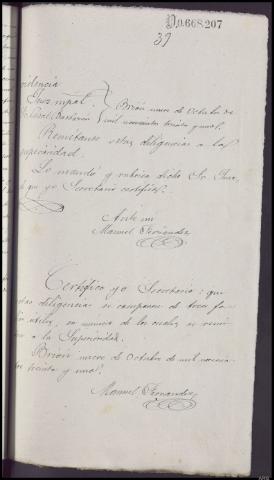 D.0.668.207
39
videncia
Juez mpal.
Brión nueve de Octubre de
mil novecientos treinta y uno.
Remítanse estas diligencias a la
uperioridad.
Lo mandó y rubrica dicho Sr Juez,
que yo Secretario certifico.
Ante mi
Manuel Fernández
Certifico yo Secretario: que
estas diligencias se componen de trece fo-
útiles, en número de los cuales se remi
a a la Superioridad.
Brión nueve de Octubre de mil novecien-
tos treinta y uno.
Manuel Fernández